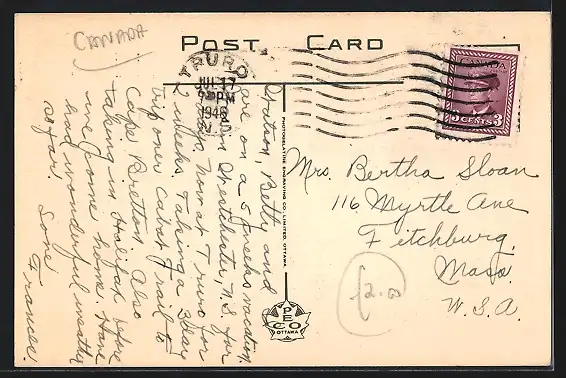 CANADA
POST CARD
TRURO
JUL 17
PM
1948
N.S.
CANADA
3 CENTS 3
Station, Betty and
are on a 5 weeks vacation.
in Westchester, N.S. for
2 weeks now at Truro for
2 weeks. Taking a 3 day
trip over Cabot Trail to
Cape Bretton. Also
taking in Halifax before
we come home. Have
had wonderful weather
so far.
Love
Frances.
PHOTOGELATINE ENGRAVING CO. LIMITED, OTTAWA
PECO
OTTAWA
Mrs. Bertha Sloan
116 Myrtle Ave
Fitchburg,
Mass.
U.S.A.
2.00